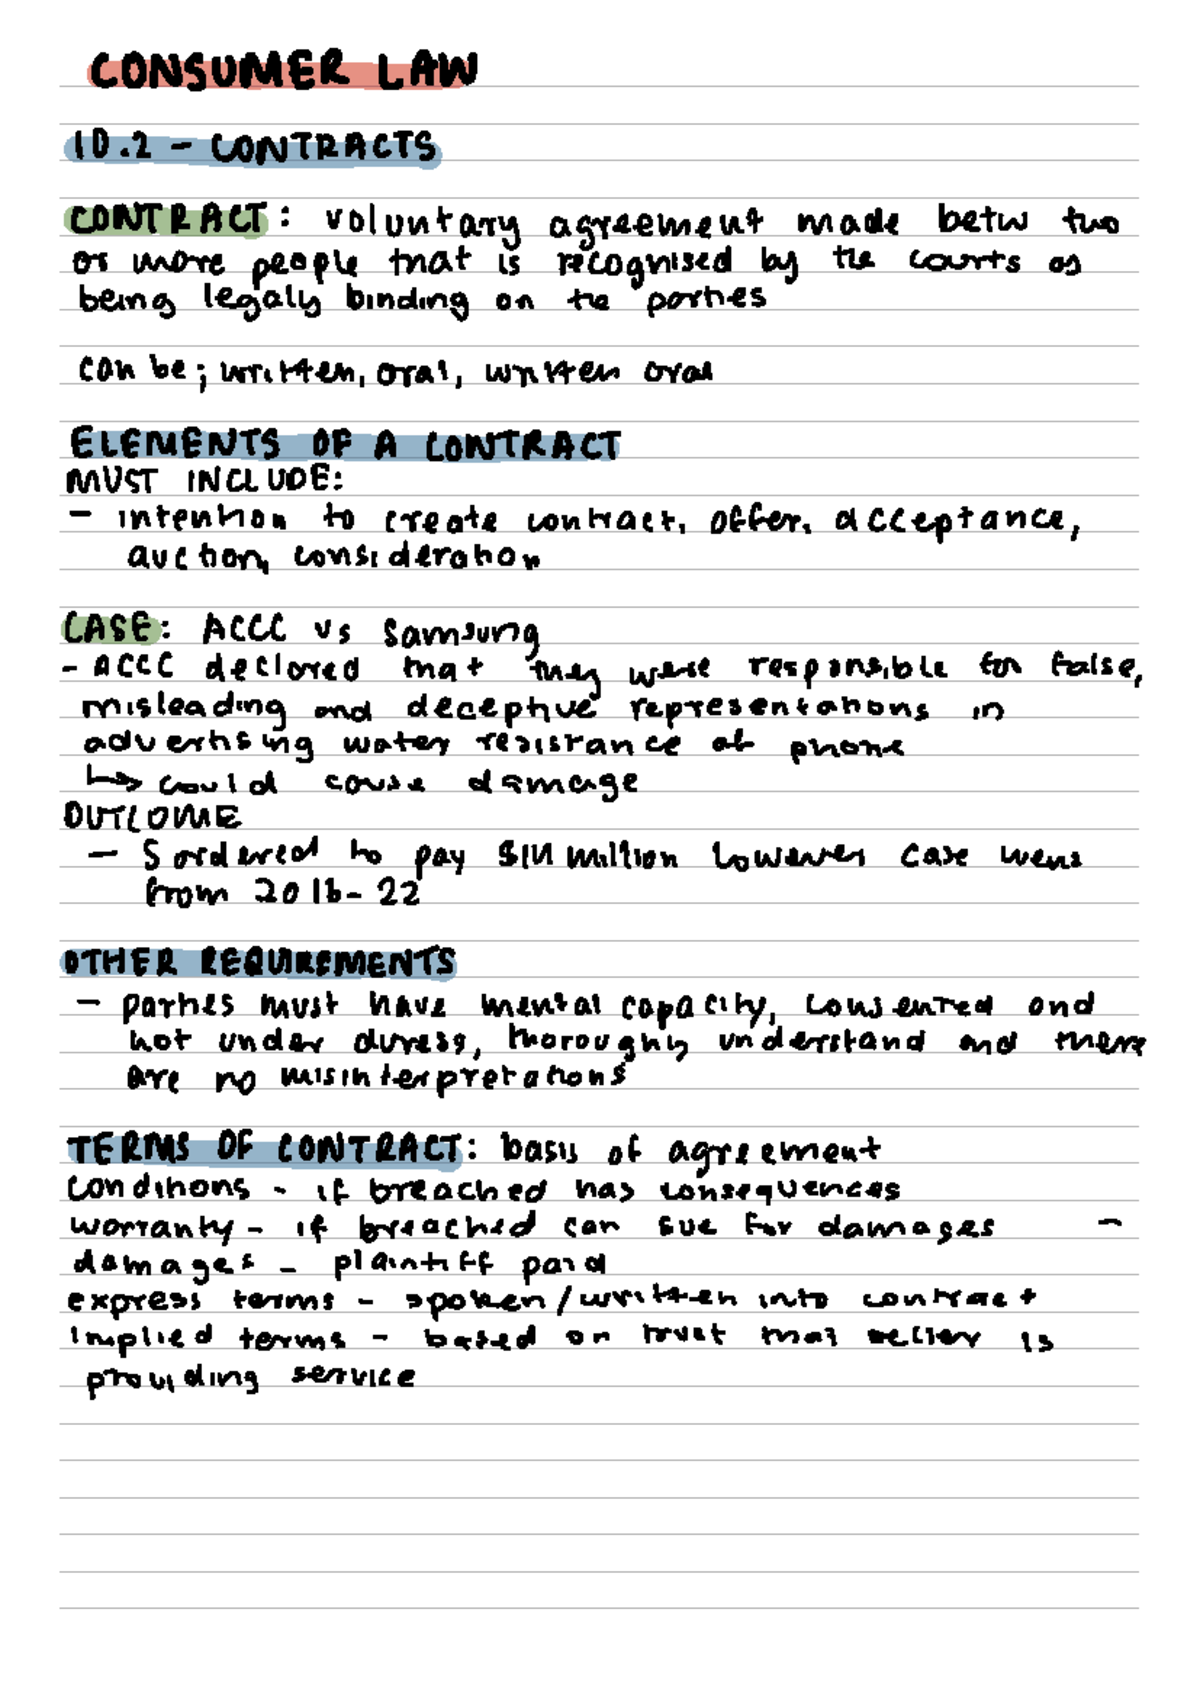 CONSUMER LAW
10.2 - CONTRACTS
CONTRACT: voluntary agreement made betw two
or more people that is recognised by the courts as
being legaly binding on the parties
can be; written, oral, written oral
ELEMENTS OF A CONTRACT
MUST INCLUDE:
- intention to create contract, offer, acceptance,
auction, consideration
CASE: ACCC vs Samsung
- ACCC declared that they were responsible for false,
misleading and deceptive representations in
advertising water resistance of phone
↳ could cause damage
OUTCOME
- S ordered to pay million however case went
from 2016-22
OTHER REQUIREMENTS
- parties must have mental capacity, consented and
not under duress, thoroughly understand and there
are no misinterpretations
TERMS OF CONTRACT: basis of agreement
conditions - if breached has consequences
warranty - if breached can sue for damages -
damages - plaintiff paid
express terms - spoken/written into contract
implied terms - based on trust that seller is
providing service